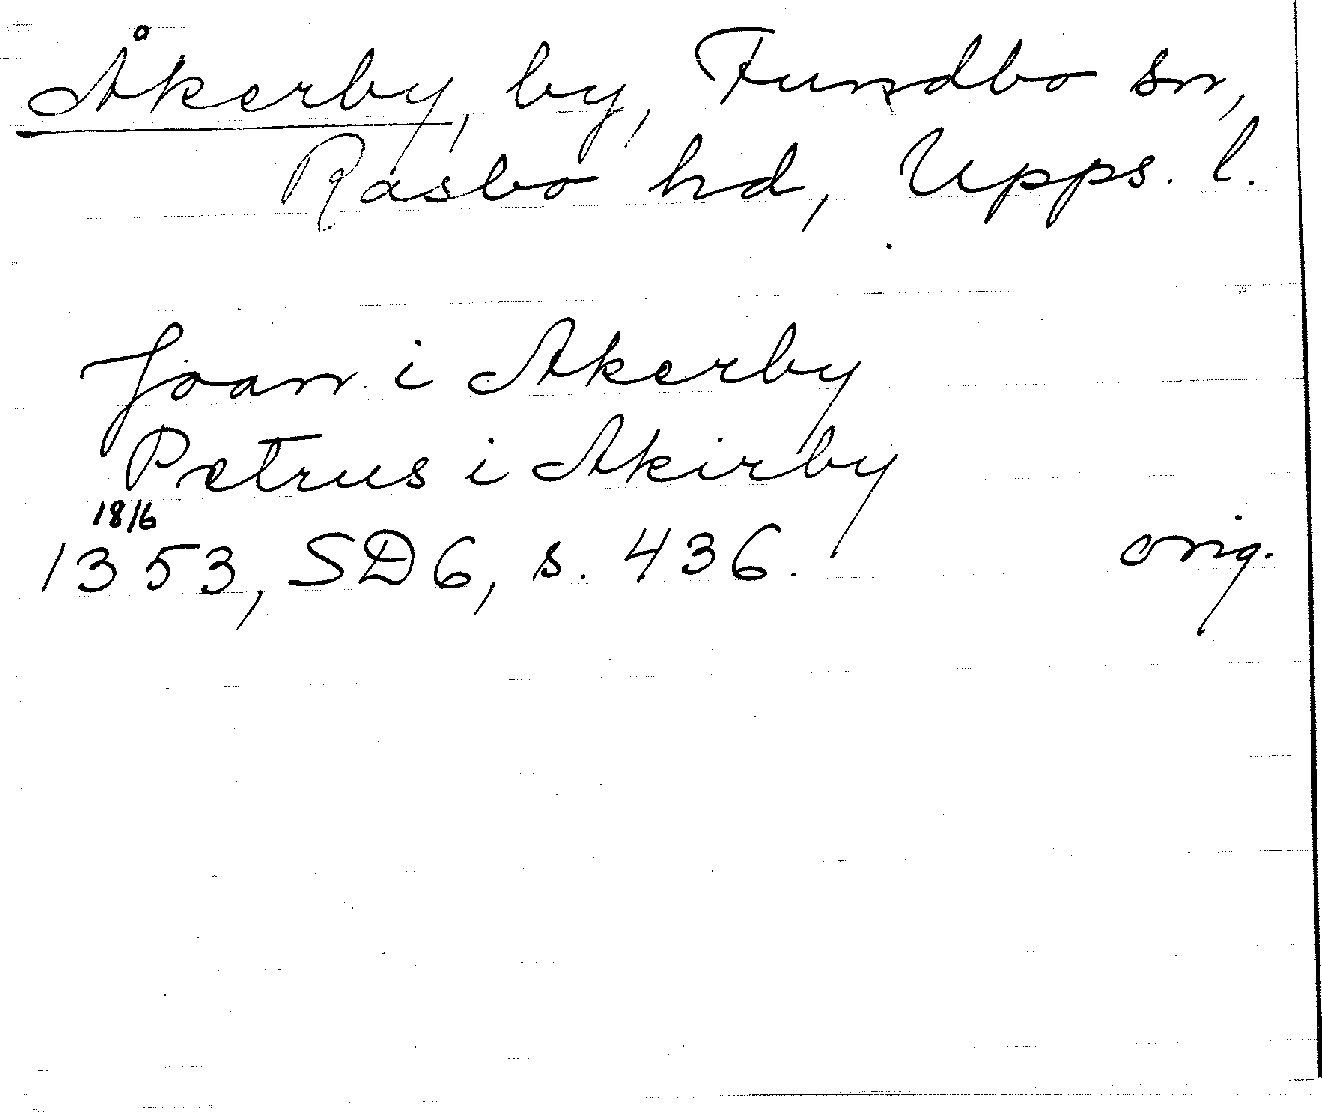 Åkerby, by, Fundbo sn,
Rasbo hd, Upps. l.
Joan i Akerby
Petrus i Akirby
18/6
1353, SD6, s. 436. orig.